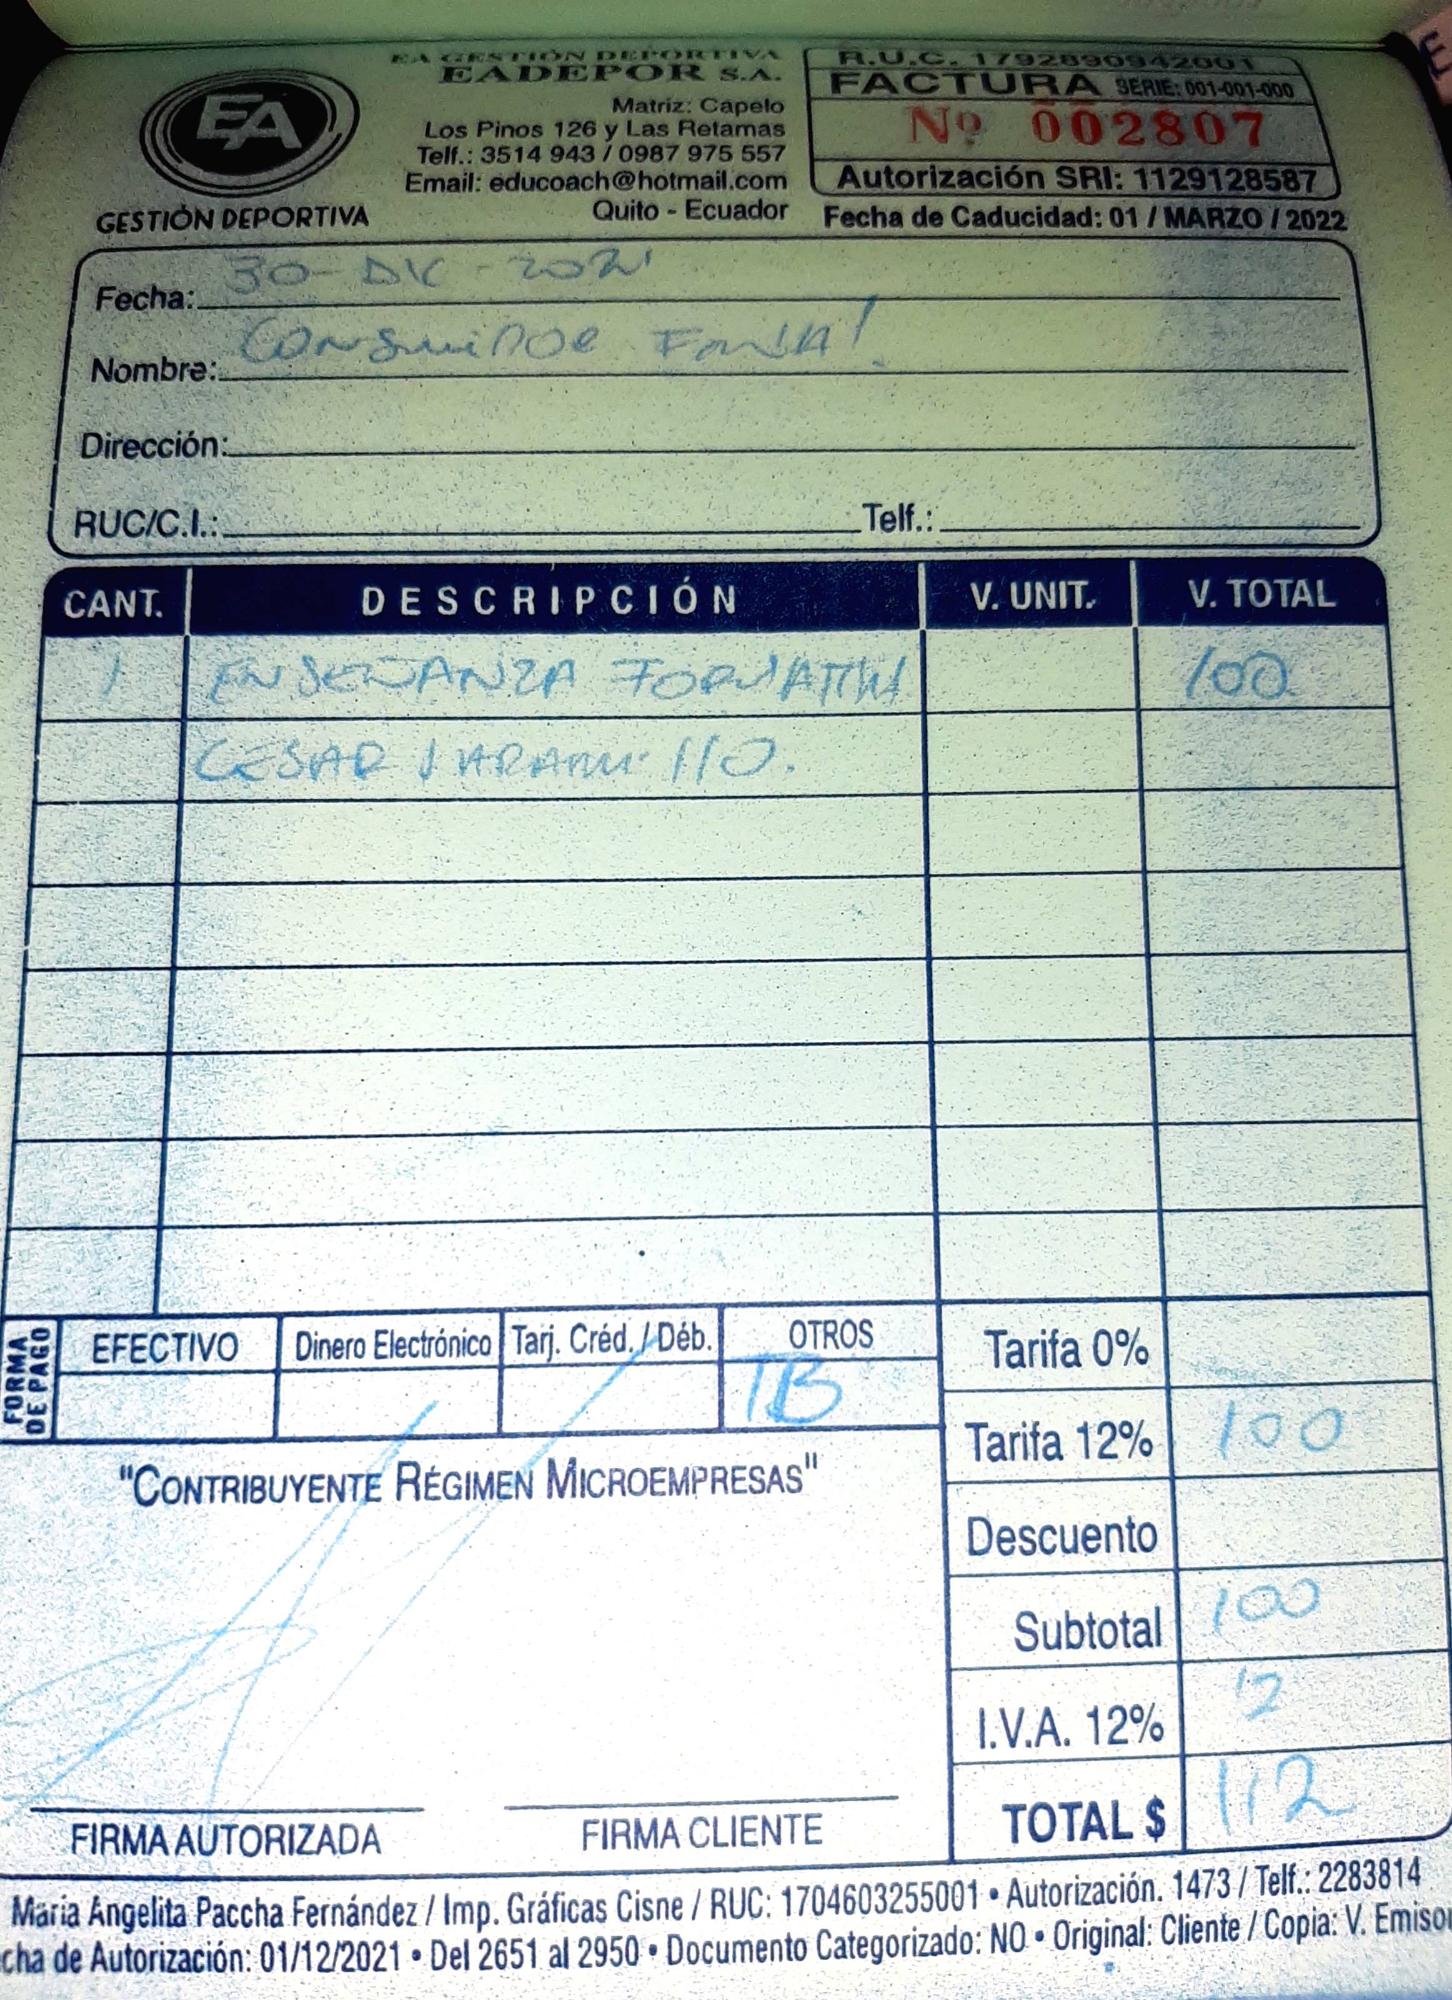 EA GESTIÓN DEPORTIVA
EADEPOR S.A.
Matriz: Capelo
Los Pinos 126 y Las Retamas
Telf.: 3514 943 / 0987 975 557
Email: educoach@hotmail.com
Quito - Ecuador
EA
GESTIÓN DEPORTIVA
R.U.C. 1792890942001
FACTURA SERIE: 001-001-000
Nº 002807
Autorización SRI: 1129128587
Fecha de Caducidad: 01 / MARZO / 2022
Fecha: 30-DIC-2021
Nombre: Consumidor Final
Dirección:
RUC/C.I.: Telf.:
CANT. DESCRIPCIÓN V. UNIT. V. TOTAL
1 ENSEÑANZA FORMATIVA 100
CESAR JARAMILLO.
FORMA DE PAGO
EFECTIVO Dinero Electrónico Tarj. Créd. / Déb. OTROS
TB
Tarifa 0%
Tarifa 12% 100
Descuento
Subtotal 100
I.V.A. 12% 12
TOTAL $ 112
"CONTRIBUYENTE RÉGIMEN MICROEMPRESAS"
FIRMA AUTORIZADA FIRMA CLIENTE
María Angelita Paccha Fernández / Imp. Gráficas Cisne / RUC: 1704603255001 • Autorización. 1473 / Telf.: 2283814
cha de Autorización: 01/12/2021 • Del 2651 al 2950 • Documento Categorizado: NO • Original: Cliente / Copia: V. Emisor